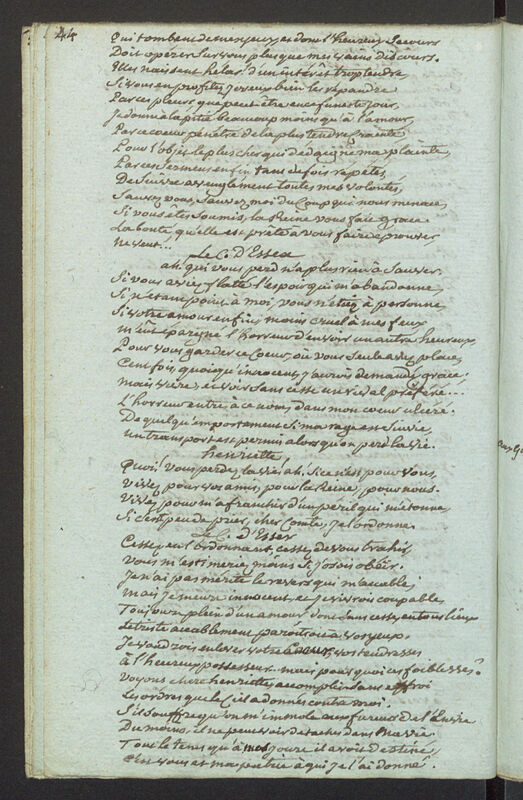 44
Qui tombent de mes yeux, et dont l'heureux secours
Doit opérer sur vous plus que mes vains discours.
Elles naissent helas! d'un interêt trop tendre
Si vous en profitez, je veux bien les répandre
Par ces pleurs, que peut-être en ce funeste jour
Je donne à la pitié beaucoup moins qu'à l'amour,
Par ce coeur pénétré de la plus tendre crainte
Pour l'objet le plus cher qui dédaigne ma plainte,
Par ces sermens enfin tant de fois repetés,
De suivre aveuglement toutes mes volontés,
Sauvez vous, sauvez moi du Coup qui nous menace,
Si vous etes soumis, la Reine vous fait grace
La bonté, qu'elle est prête à vous faire eprouver
Ne veut...
Le C. d'Essex
ah. qui vous perd n'a plus rien à sauver.
Si vous aviez flaté l'espoir qui m'abandonne
Si n'etant point à moi vous n'etiez à personne
Si votre amour enfin moins cruel à mes feux
m'eut épargné l'horreur d'en voir un autre heureux
Pour vous garder ce Coeur, où vous seule avez place,
Cent fois, quoiqu'innocent, j'aurois demandé grace.
mais vivre, et voir sans cesse un rival préféré...
L'horreur entre à ce nom, dans mon coeur ulceré.
De quelqu'emportement si ma rage est suivie
un transport est permis alors qu'on perd la vie.
henriette
Quoi! Vous perdez la vie ah. si ce n'est pour vous
Vivez pour vos amis, pour la Reine, pour nous.
Vivez pour m'afranchir d'un péril qui m'etonne
Si c'est peu de prier, cher Comte, je l'ordonne.
Le C. d'Essex
Cessez en l'ordonnant, cessez de vous trahir
Vous m'estimeriez moins si j'osois obéir.
Je n'ai pas merité le revers qui m'accable,
mais je meurs innocent, et je vivrois coupable
Toujours plein d'un amour dont sans cesse en tous lieux
Le triste accablement paroitroit à vos yeux.
Je voudrois enlever votre Coeur, vos tendresses
à l'heureux possesseur... mais pourquoi ces foiblesses?
Voyons chere henriette accomplir sans effroi
Les ordres que le Ciel a donnés contre moi.
S'il souffre qu'on m'immole aux fureurs de l'Envie
Du moins, il ne peut voir de taches dans ma vie
Tout le tems qu'à mes jours il avoit destiné
C'est vous et ma patrie à qui je l'ai donné.